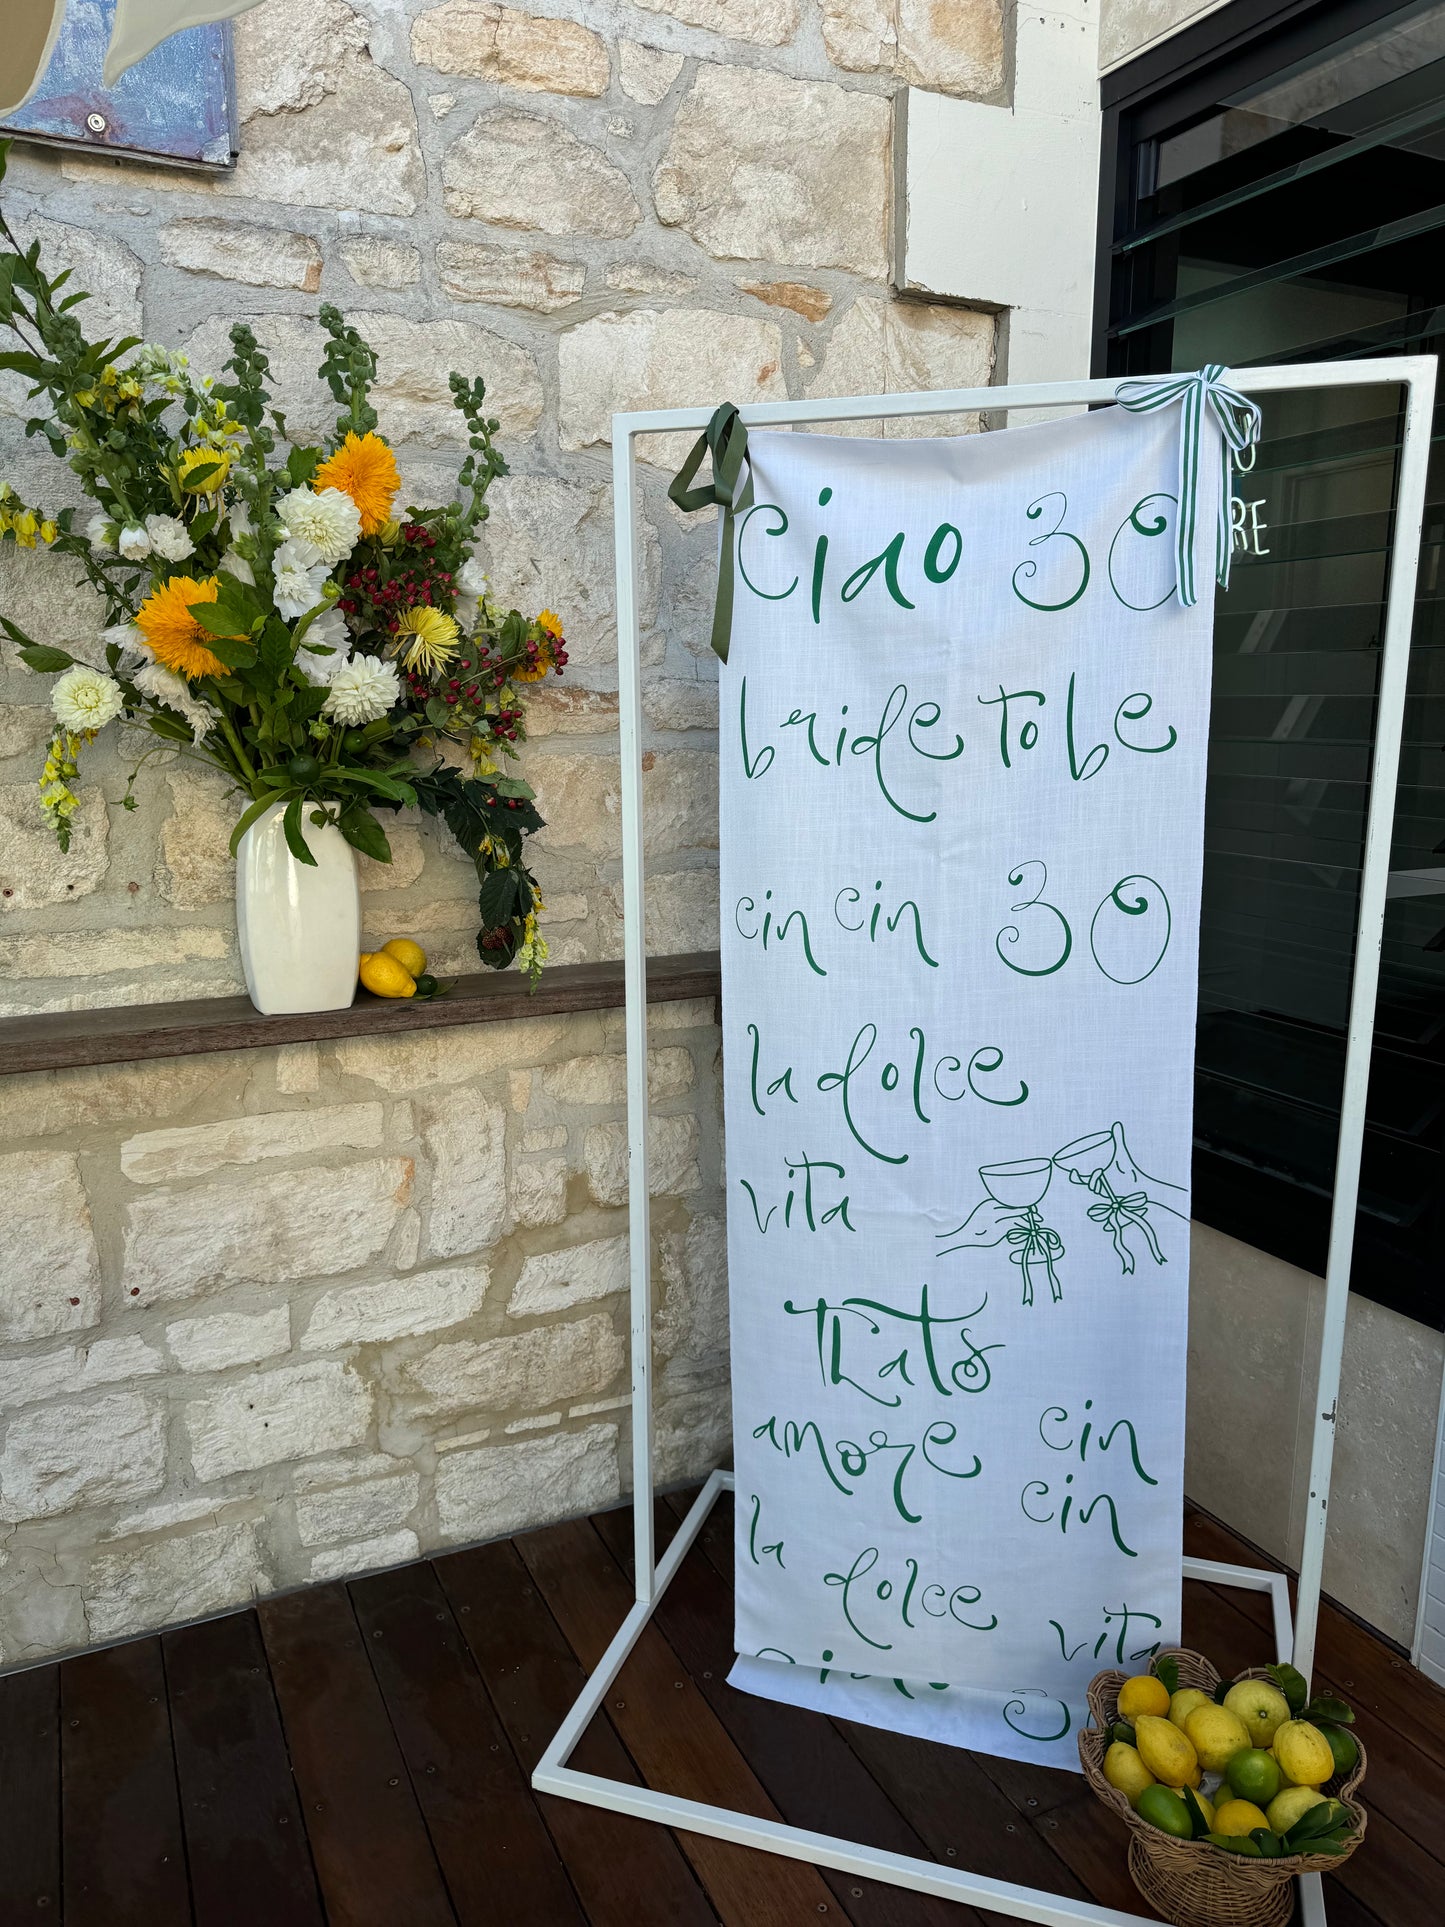 Ciao 30
bride to be
cin cin 30
la dolce
vita
Thats
amore
cin
cin
la dolce
vita
3
RE